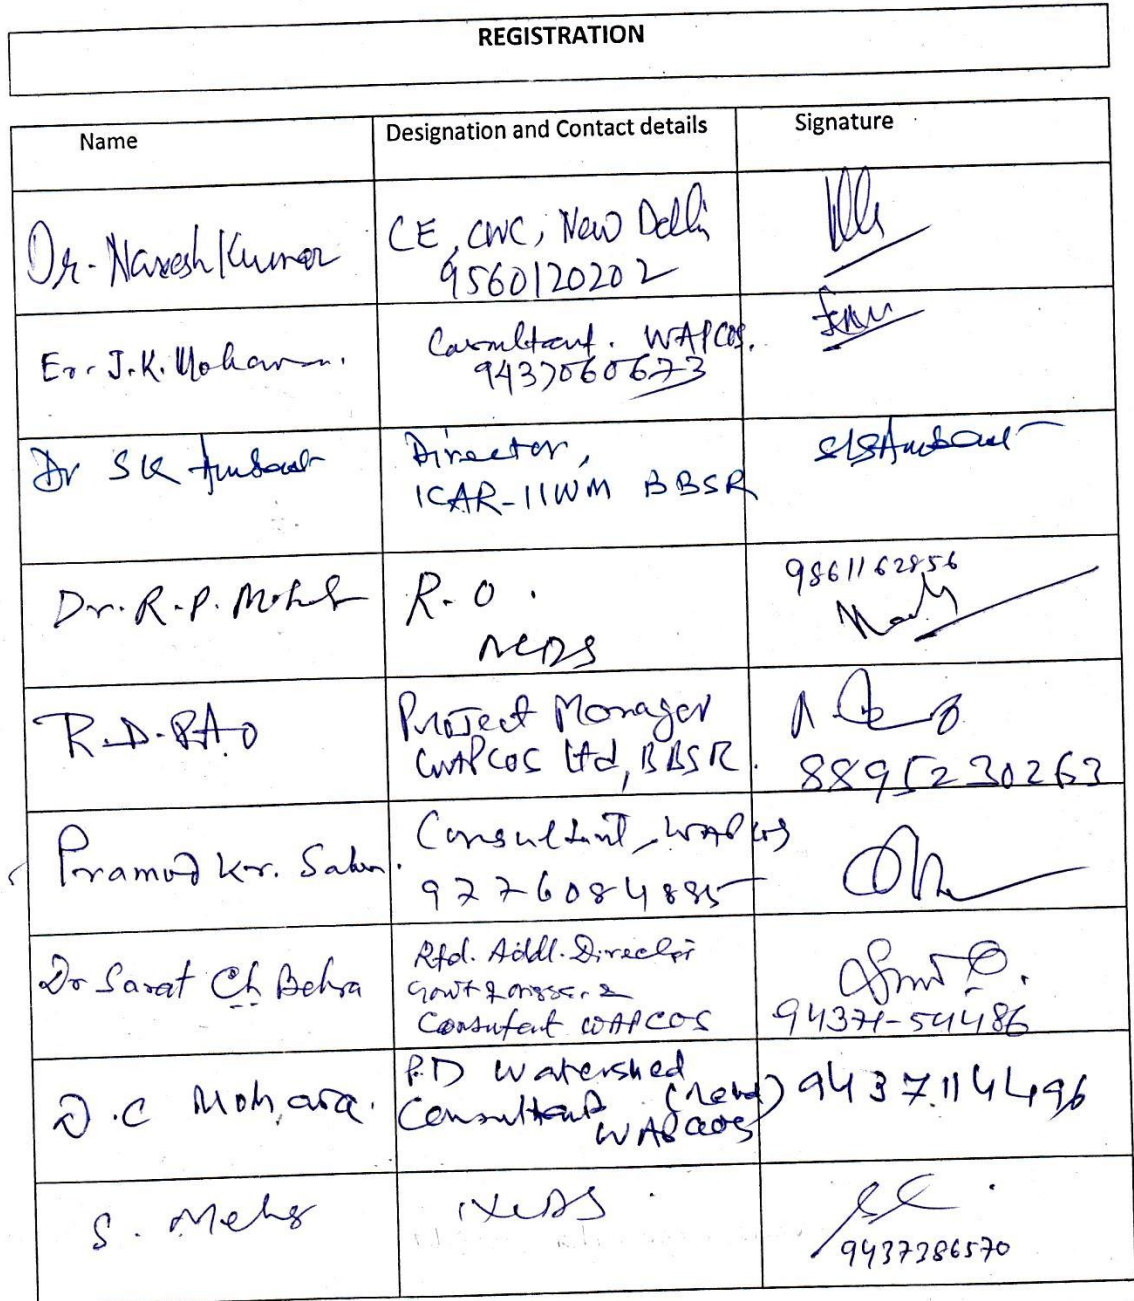 REGISTRATION
Name
Designation and Contact details
Signature
Dr. Naresh Kumar
CE, CWC, New Delhi
9560120202
Er. J.K.
Consultant. WAPCOS.
9437060673
Dr SK Ambast
Director,
ICAR-IIWM BBSR
SKAmbast
Dr. R.P.
R.O.
9861162856
R.D. RAO
Project Manager
WAPCOS Ltd, BBSR.
88952 30263
Pramod Kr. Sahu.
Consultant, WAPCOS
9776084885
Dr Sarat Ch Behra
Rtd. Addl. Director
Govt &
Consultent WAPCOS
94371-54486
D.C
P.D Watershed
Consultant
WAPCOS
9437114496
S.
9437386570